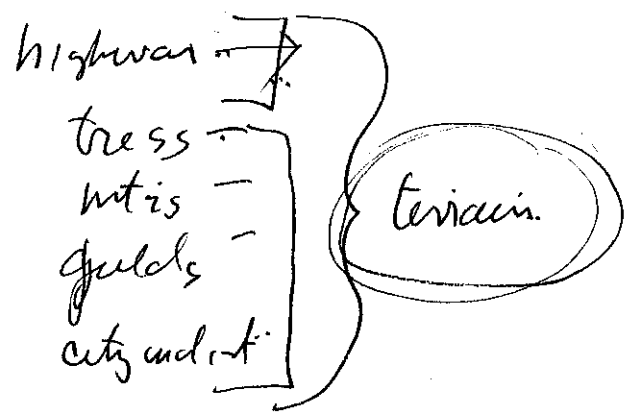 highway
tress
mtis
fields
city
terrain.